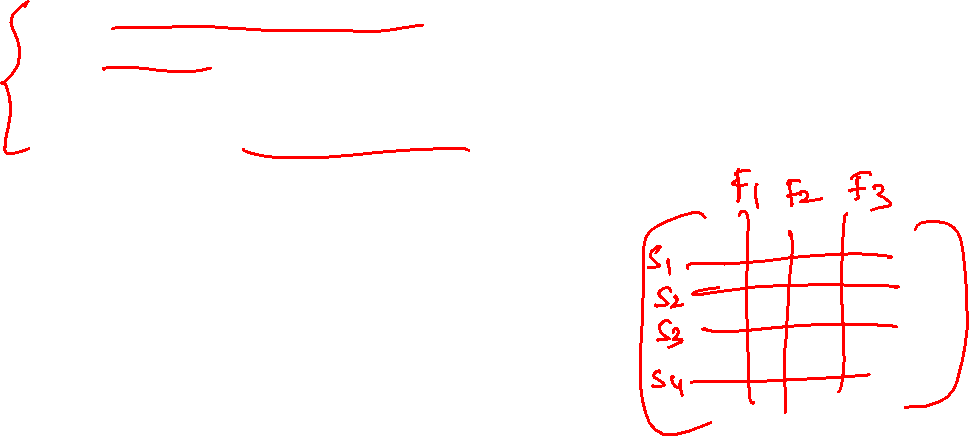 F1 F2 F3
S1
S2
S3
S4